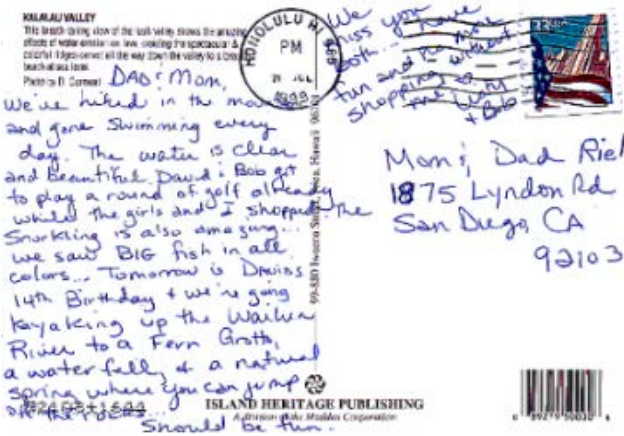 KALALAU VALLEY
This breath-taking view of the lush valley shows the amazing
effects of water erosion on lava, creating the spectacular &
colorful ridges all the way down the valley to a
beach at sea level.
Photo by D. Cornwell
DAD & Mom,
We've hiked in the
and gone Swimming every
day. The water is clear
and beautiful. David & Bob got
to play a round of golf already
while the girls and I shopped. The
Snorkling is also amazing...
we saw BIG fish in all
colors... Tomorrow is Davids
14th Birthday & we're going
Kayaking up the Wailua
River to a Fern Grotto,
a water fall, & a natural
spring where you can jump
off the rocks...
Should be fun.
We
miss you
both... have
fun and no more
shopping without
me
& Bob
HONOLULU HI 968
PM
JUL
1999
Mom & Dad
1875 Lyndon Rd
San Diego, CA
92103
Hawaii
ISLAND HERITAGE PUBLISHING
A division of The Madden Corporation